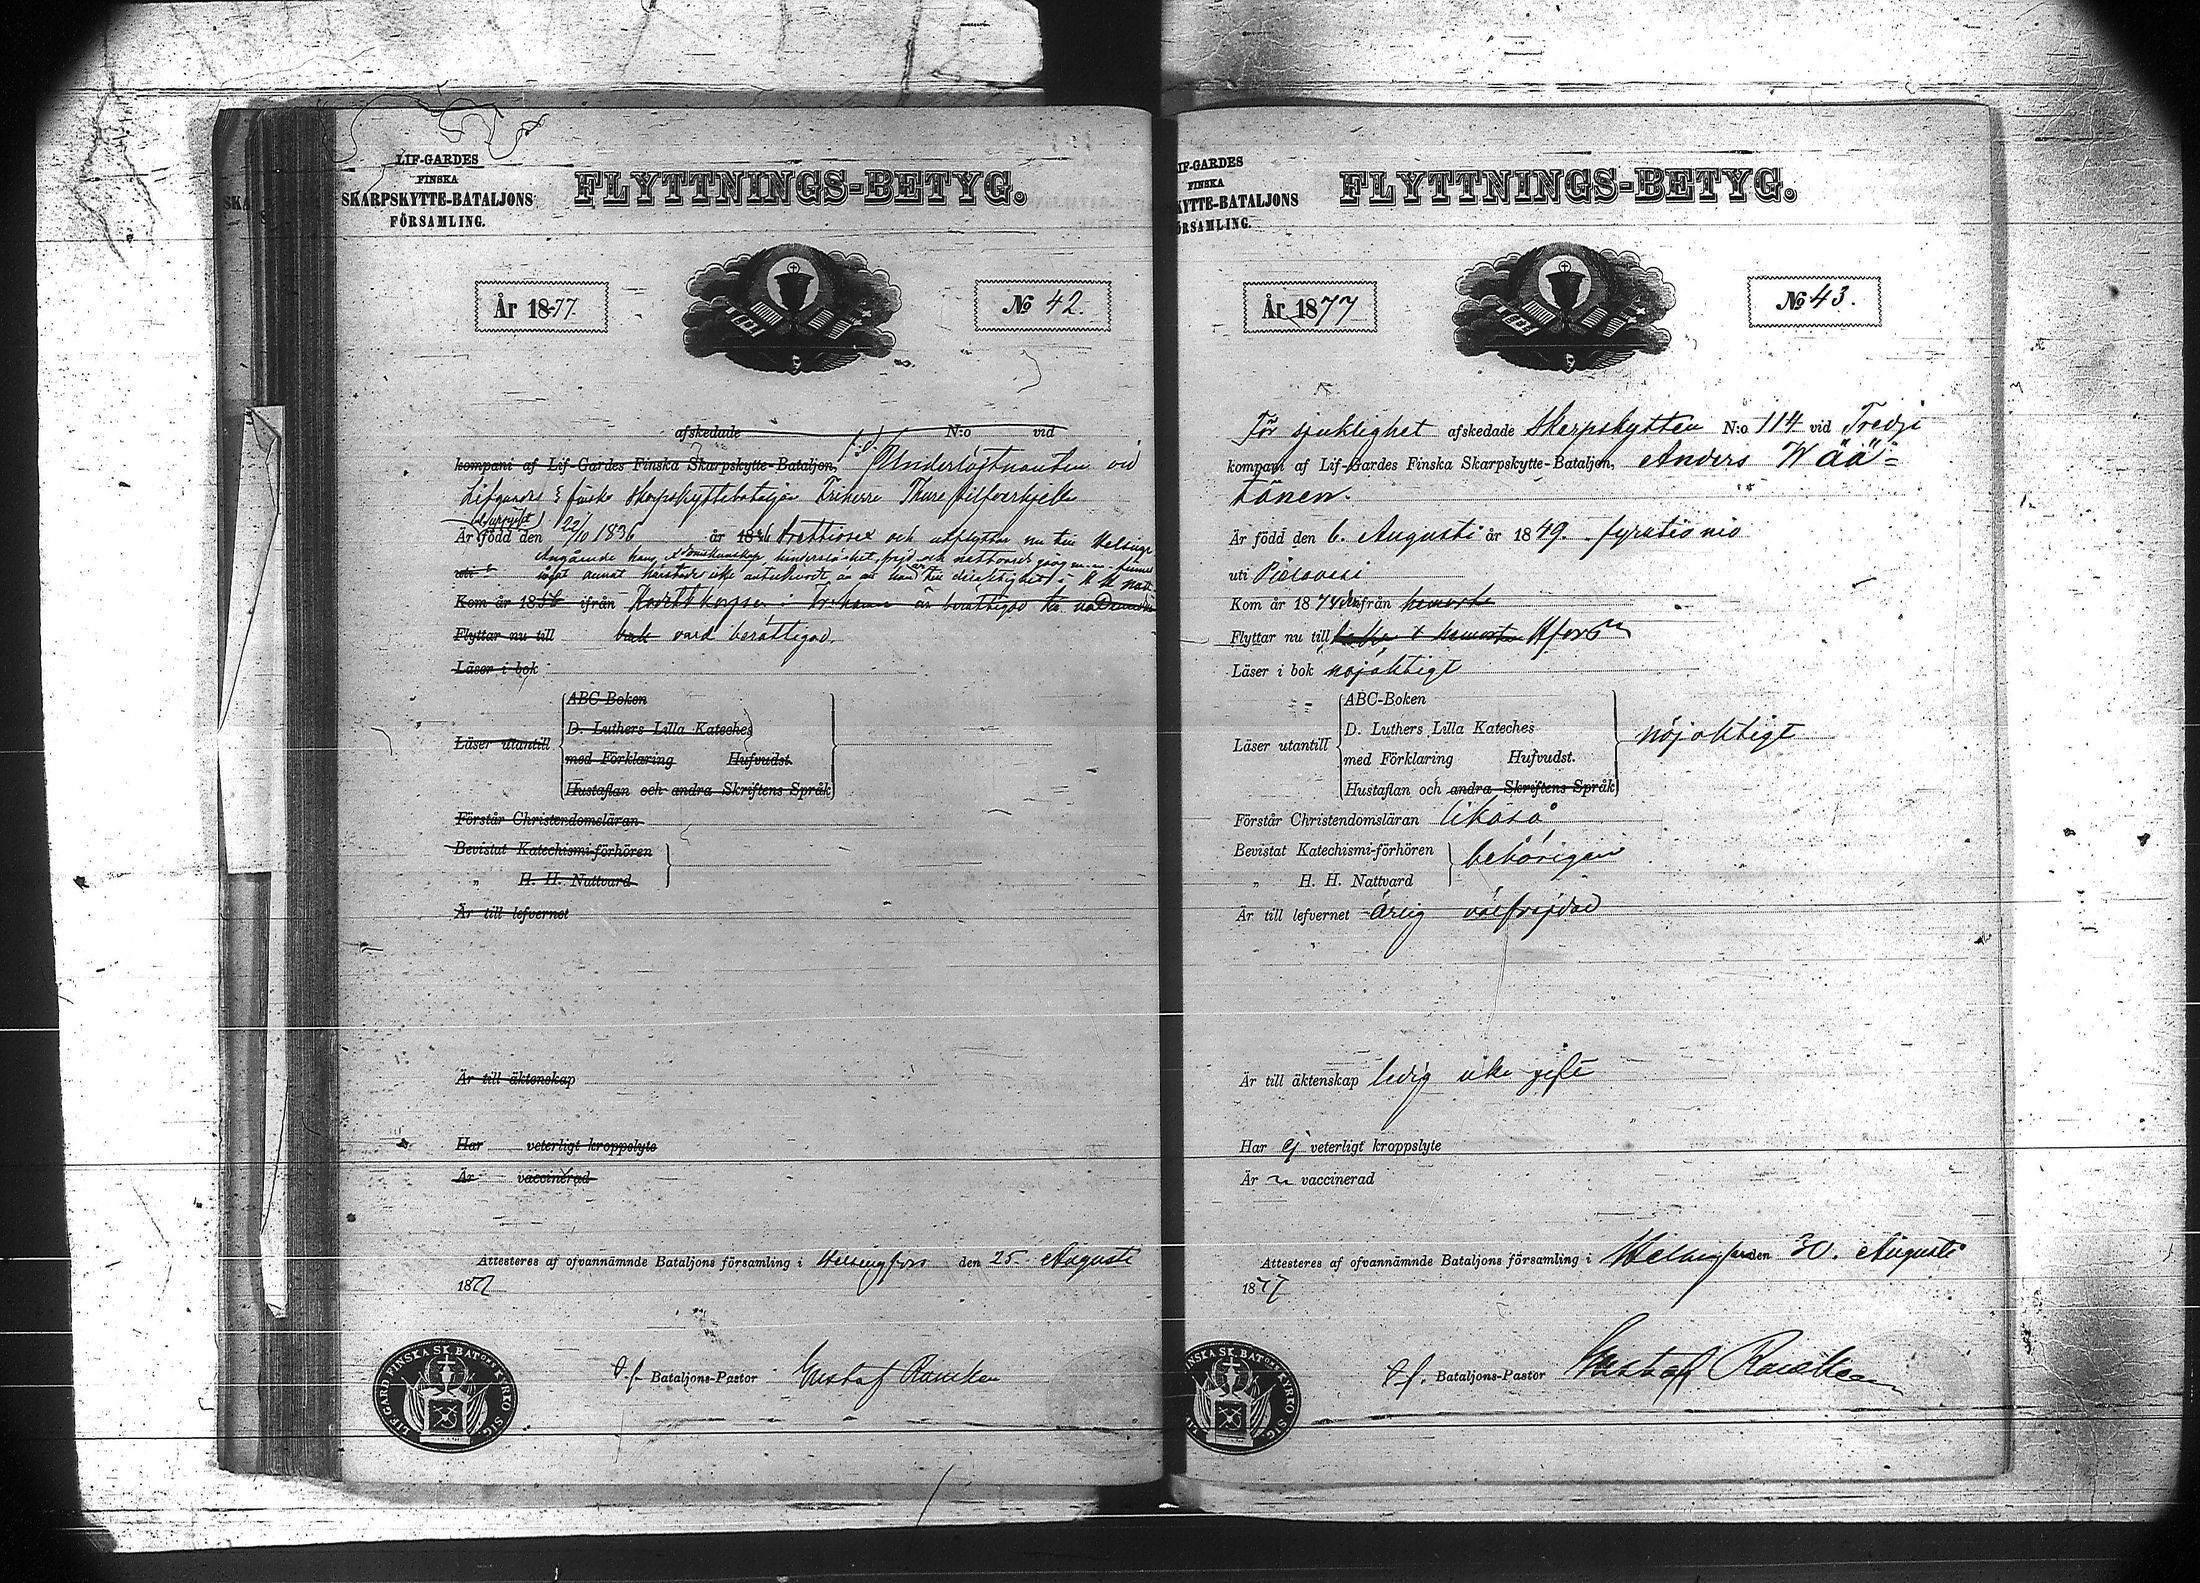 LIF-GARDES
FINSKA
SKARPSKYTTE-BATALJONS
FÖRSAMLING.
FLYTTNINGS-BETYG.
År 1877.
No 42.
afskedade N:o vid
kompani af Lif-Gardes Finska Skarpskytte-Bataljon, f. d. Underlöjtnanten vid
Lifgardes Finska Skarpskyttebataljon Friherre Thure
Är född den 22/10 1836 år 1836 trettiosex och utflyttar nu till Helsingf
Angående hans kristendomskunskap, frejd och nattvardsgång
uti annat härstädes icke antecknadt än att han till
Kom år 1856 ifrån i är berättigad
Flyttar nu till vard berättigad.
Läser i bok
Läser utantill
ABC-Boken
D. Luthers Lilla Kateches
med Förklaring Hufvudst.
Hustaflan och andra Skriftens Språk
Förstår Christendomsläran
Bevistat Katechismi-förhören
„ H. H. Nattvard
Är till lefvernet
Är till äktenskap
Har veterligt kroppslyte
Är vaccinerad
Attesteres af ofvannämnde Bataljons församling i Helsingfors den 25. Augusti
1877
Bataljons-Pastor Gustaf Rancken
LIF.GARD FINSKA SK.BATONS KYRKO SIG.
IF-GARDES
FINSKA
KYTTE-BATALJONS
ÖRSAMLING.
FLYTTNINGS-BETYG.
År 1877
No 43.
För sjuklighet afskedade Skarpskytten N:o 114 vid Tredje
kompani af Lif-Gardes Finska Skarpskytte-Bataljon, Anders Wää-
tänen.
Är född den 6. Augusti år 1849. fyrationio
uti Pielavesi
Kom år 187 ifrån hemort
Flyttar nu till Hfors
Läser i bok nöjaktigt
Läser utantill
ABC-Boken
D. Luthers Lilla Kateches
med Förklaring Hufvudst.
Hustaflan och andra Skriftens Språk
nöjaktigt
Förstår Christendomsläran likaså
Bevistat Katechismi-förhören
„ H. H. Nattvard
behörigen
Är till lefvernet ärlig välfrejdad
Är till äktenskap ledig icke gift
Har ej veterligt kroppslyte
Är vaccinerad
Attesteres af ofvannämnde Bataljons församling i Helsingfors den 30. Augusti
1877
Bataljons-Pastor Gustaf Rancken
INSKA SK.BATONS KYRKO SIG.